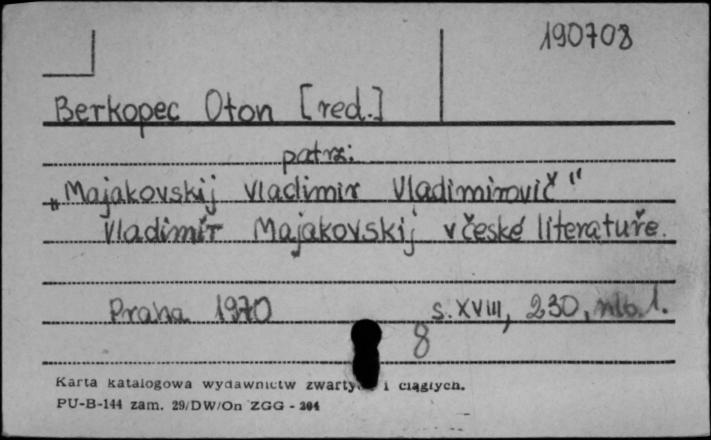 190708
Berkopec Oton [red.]
patrz:
„Majakovskij Vladimir Vladimirovič"
Vladimír Majakovskij v české literatuře.
Praha 1970 s. XVIII, 230, nlb. 1.
8
Karta katalogowa wydawnictw zwartych i ciągłych.
PU-B-144 zam. 29/DW/On ZGG - 204